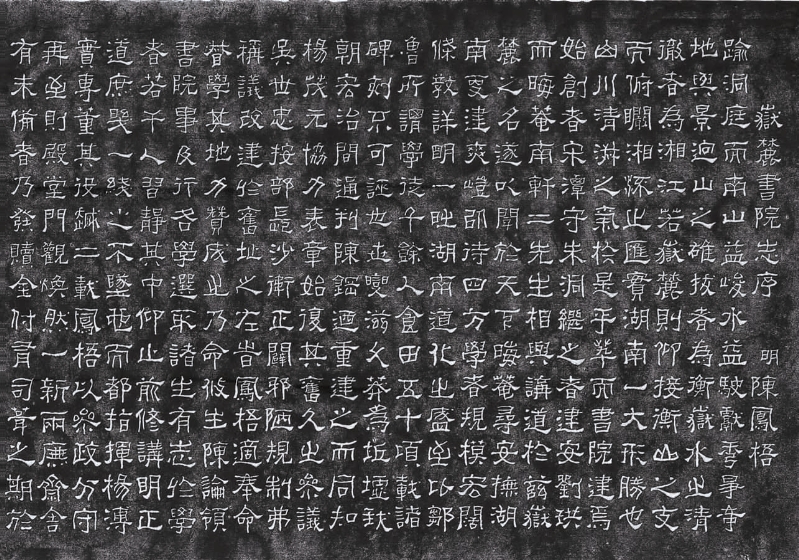 嶽麓書院志序 明 陳鳳梧
踰洞庭而南山益峻水益駛獻秀
地與景迥山之碓拔者為衡嶽水之清
澈者為湘江若嶽麓則仰接衡山之支
而俯瞯湘流止匯實湖南一大形勝也
山川清淑之氣於是乎萃而書院建焉
始創者宋潭守朱洞繼之者建安劉珙
而晦菴南軒二先生相與講道於茲嶽
麓之名遂以聞於天下晦菴尋安撫湖
南更建爽塏卲待四方學者規模宏闊
條教詳明一時湖南道化之盛至比鄒
魯所謂學徒千餘人食田五十頃載諸
碑刻不可誣也世變滋久莽為坵墟我
朝宏治間通判陳鋼迺重建之而同知
楊茂元協力表章始復其舊久之參議
吳世忠按部長沙衛正闢邪陋規制弗
稱議改建於舊址之左峕鳳梧適奉命
督學其地力贊成之乃命攸生陳論領
書院事及行各學選取諸生有志於學
者若干人習靜其中仰止前修講明正
道庶幾一綫之不墜也而都指揮楊溥
實專董其役踰二載鳳梧以參政分守
再至則殿堂門觀煥然一新兩廡齋舍
有未備者乃發贖金付有司葺之期於